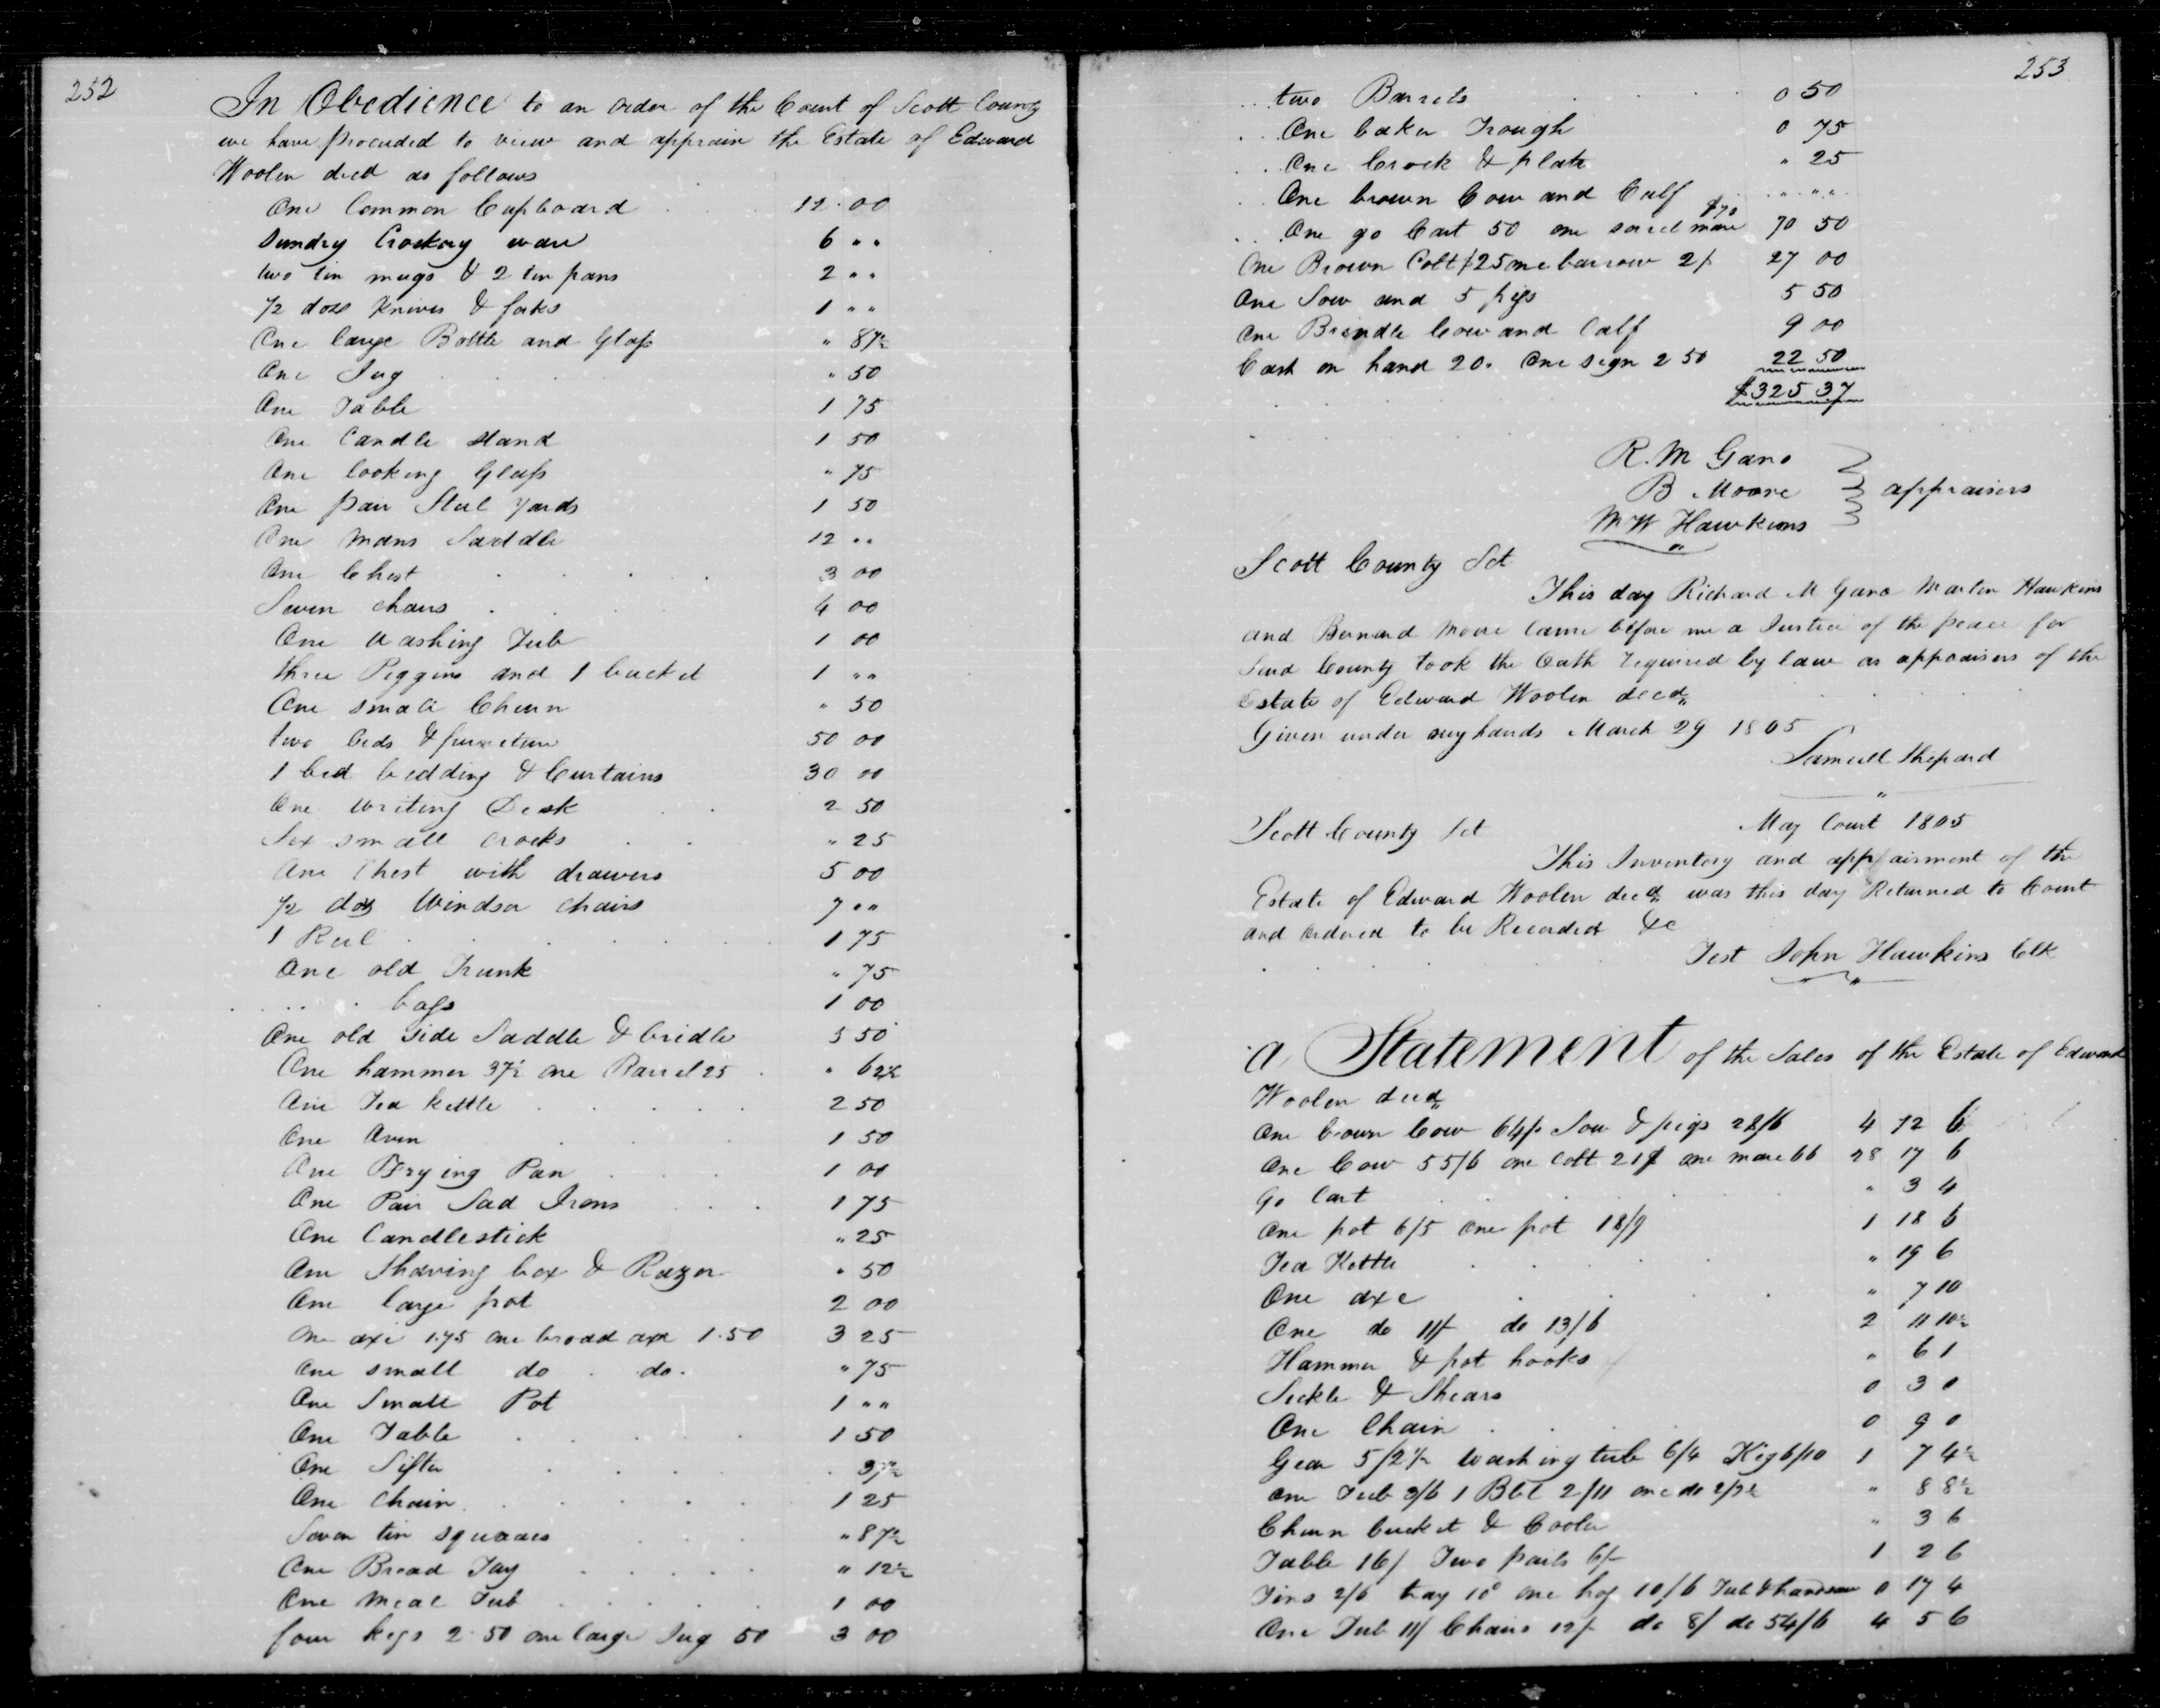 252
In Obedience to an order of the Court of Scott County
we have proceeded to view and appraise the Estate of Edward
Woolen decd as follows
One Common Cupboard 12 00
Sundry Crockery ware 6 " "
two tin mugs & 2 tin pans 2 " "
1/2 doz Knives & forks 1 " "
One large Bottle and Glass " 87 1/2
One Jug " 50
One Table 1 75
One Candle stand 1 50
One looking Glass " 75
One pair Steel yards 1 50
One Mans Saddle 12 " "
One Chest 3 00
Seven chairs 4 00
One Washing Tub 1 00
three Piggins and 1 bucket 1 " "
One small Churn " 50
two beds & furniture 50 00
1 bed bedding & Curtains 30 00
One writing Desk 2 50
Six small crocks " 25
One Chest with drawers 5 00
1/2 doz Windsor chairs 7 " "
1 Reel 1 75
One old Trunk " 75
bags 1 00
One old side Saddle & bridle 5 50
One hammer 37 1/2 one Barrel 25 " 62 1/2
One Tea kettle 2 50
One Oven 1 50
One Frying Pan 1 00
One Pair Sad Irons 1 75
One Candlestick " 25
One Shaving box & Razor " 50
One large pot 2 00
One axe 1.75 one broad axe 1.50 3 25
One small do . do. " 75
One Small Pot 1 " "
One Table 1 50
One Sifter 37 1/2
One Chain 1 25
Seven tin squares " 87 1/2
One Bread Tay " 12 1/2
One Meal Tub 1 00
four kegs 2.50 one large Jug 50 3 00
253
two Barrels 0 50
One baker Trough 0 75
One Crock & plate " 25
One brown Cow and Calf " " " "
One go Cart 50 one sorrel mare $70 70 50
One Brown Colt $25 one barrow 2$ 27 00
One Sow and 5 pigs 5 50
One Brindle Cow and Calf 9 00
Cash on hand 20. One sign 2 50 22 50
$325 37
R. M Gano
B Moore } appraisers
M W Hawkins
Scott County Sct
This day Richard M Gano Martin Hawkins
and Bernard Moore Came before me a Justice of the peace for
Said County took the Oath required by law as appraisers of the
Estate of Edward Woolen decd
Given under my hands March 29 1805
Samuell Shepard
Scott County Sct May Court 1805
This Inventory and appraisment of the
Estate of Edward Woolen decd was this day Returned to Court
and ordered to be Recorded &c
Test John Hawkins Clk
a Statement of the Sales of the Estate of Edward
Woolen decd
One brown Cow 64/ Sow & pigs 28/6 4 12 6
One Cow 55/6 one Colt 21£ one mare 66 28 17 6
Go Cart " 3 4
One pot 6/5 one pot 18/9 1 18 6
Tea Kettle " 19 6
One axe " 7 10
One do 11/ do 13/6 2 11 10 1/2
Hammer & pot hooks " 6 1
Sickle & Shears 0 3 0
One Chain 0 9 0
Gear 5/2 1/2 washing tub 6/4 Keg 6/10 1 7 4 1/2
One Tub 3/6 1 Bbl 2/11 one do 2/3 1/2 " 8 8 1/2
Churn bucket & Cooler " 3 6
Table 16/ Two pails 6/ 1 2 6
Tins 2/6 tray 10d one hog 10/6 Tub & handsaw 0 17 4
One Tub 11/ Chairs 12/ do 8/ do 54/6 4 5 6